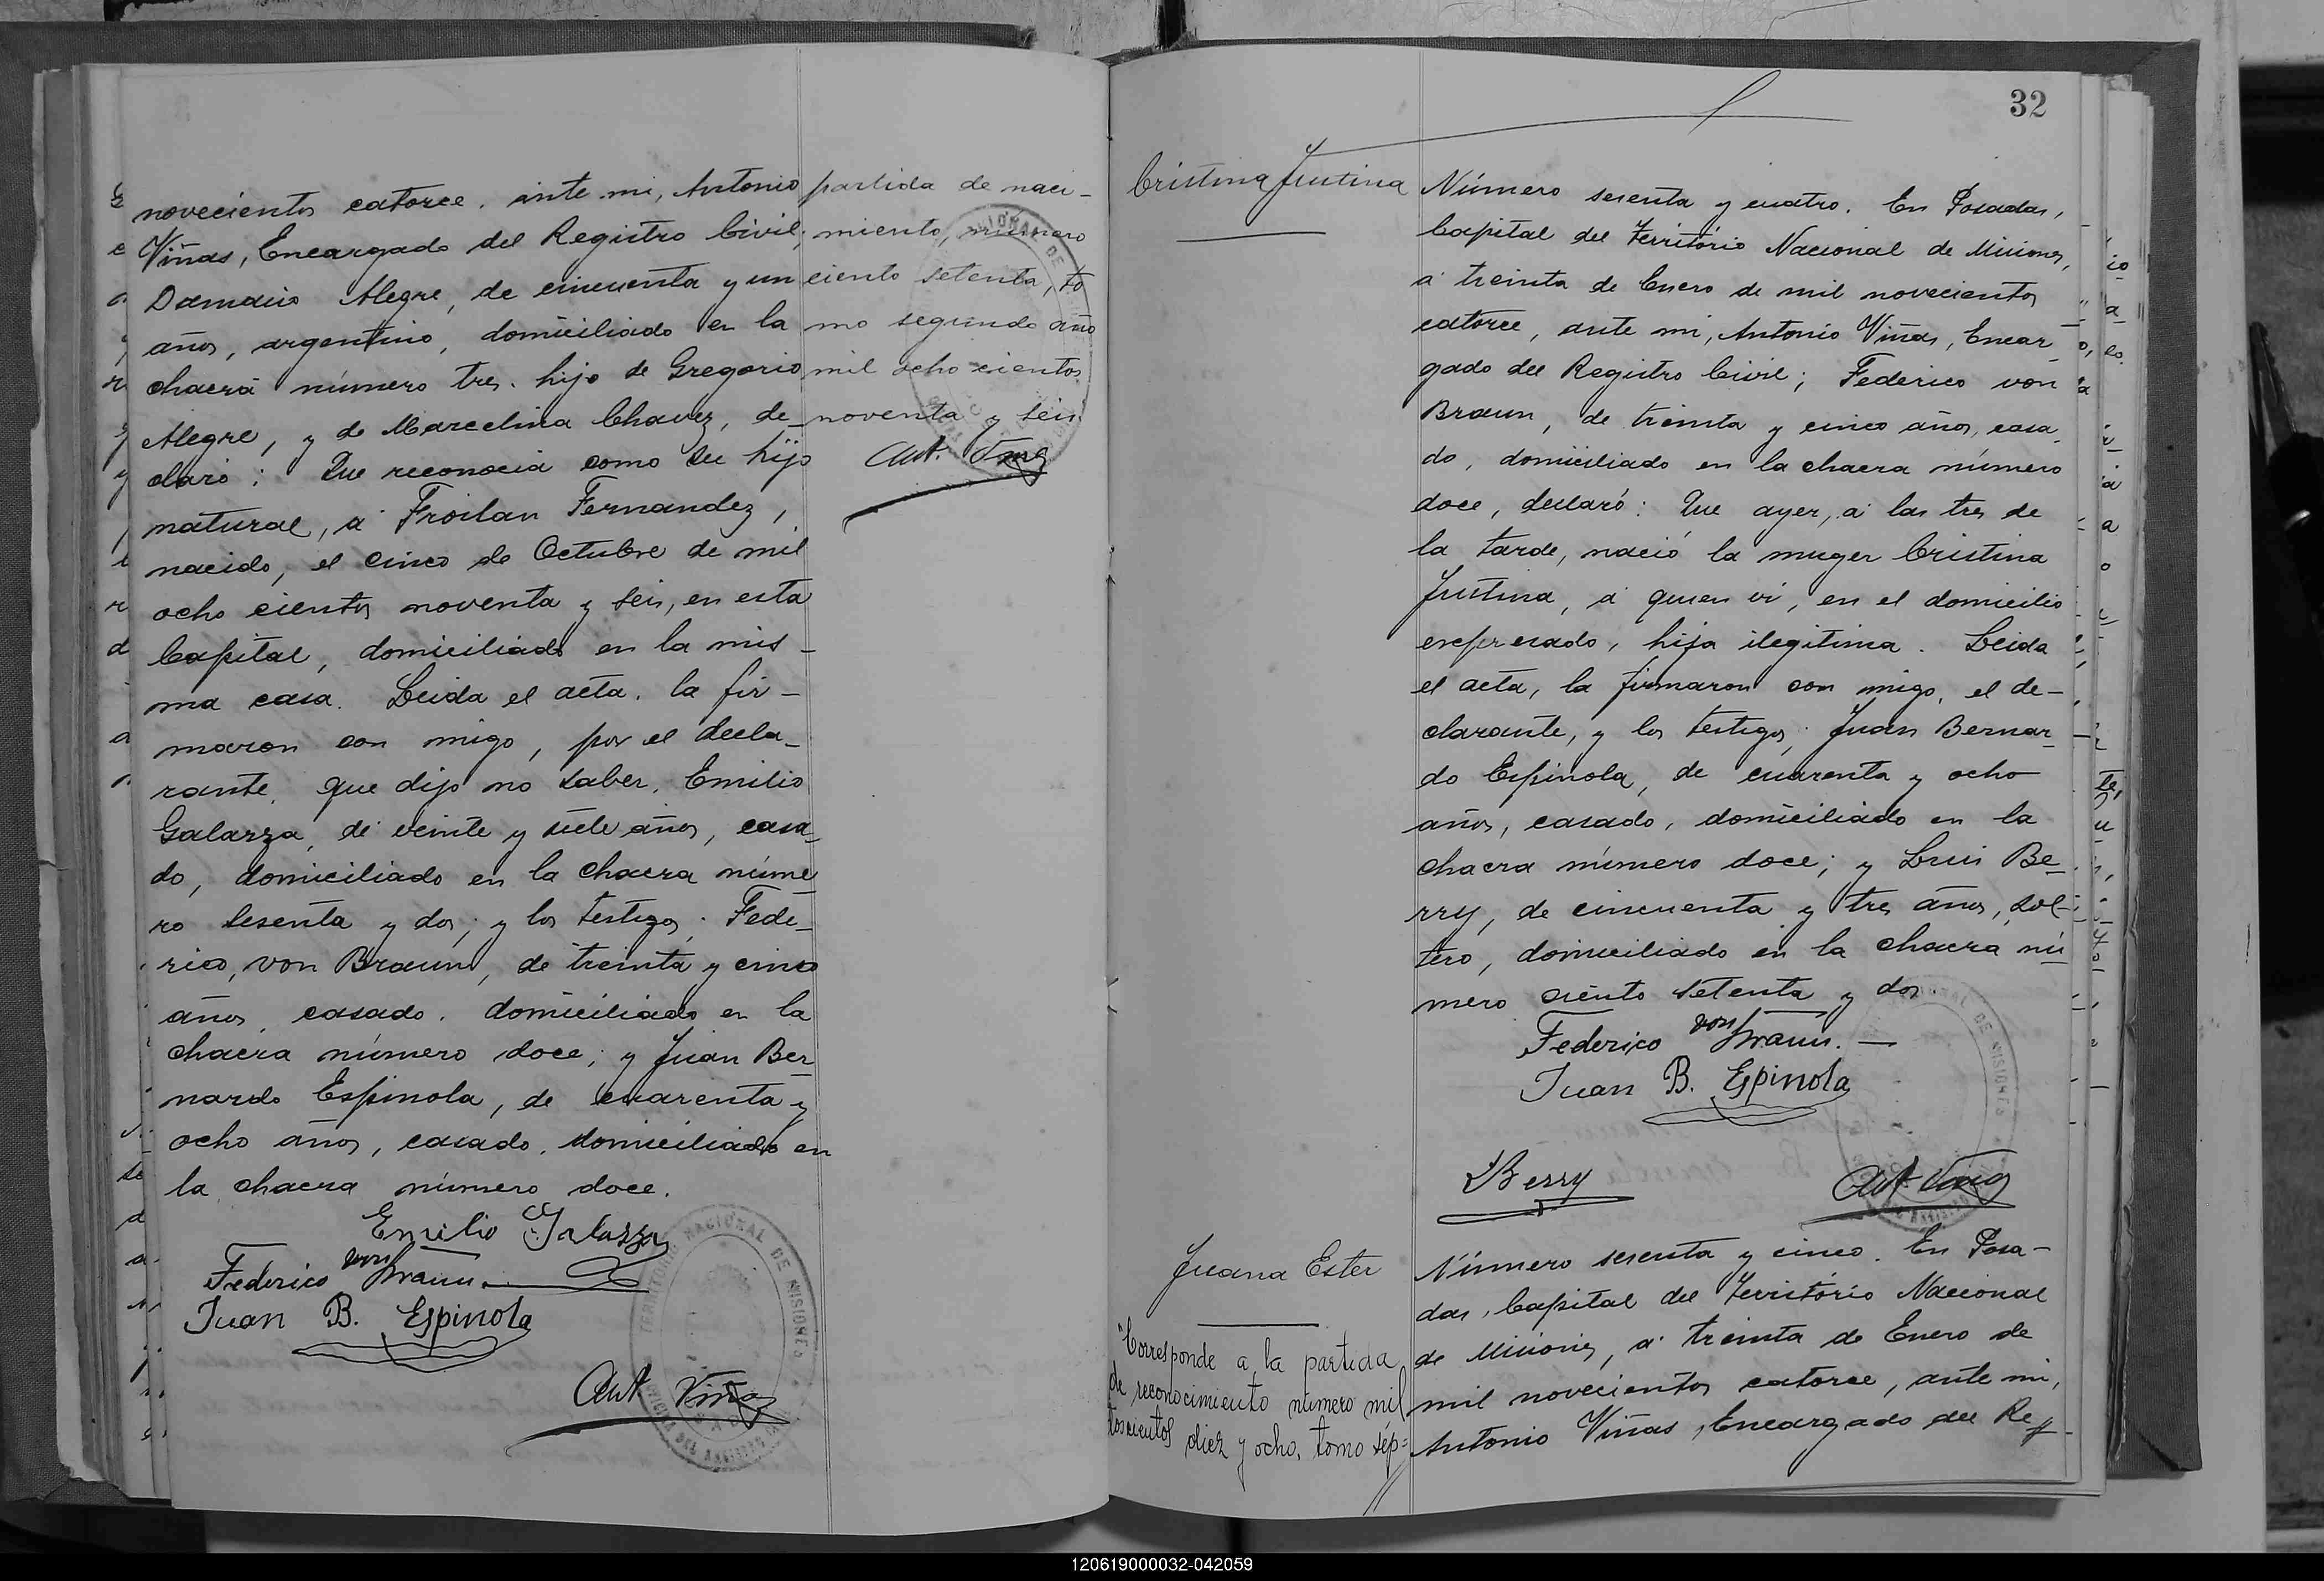 novecientos catorce. ante mi, Antonio
Viñas, Encargado del Registro Civil;
Damacio Alegre, de cincuenta y un
años, argentino, domiciliado en la
chacra número tres. hijo de Gregorio
Alegre, y de Marcelina Chavez, de_
claró: Que reconocia como su hijo
natural, á Froilan Fernandez,
nacido, el cinco de Octubre de mil
ocho cientos noventa y seis, en esta
Capital, domiciliado en la mis_
ma casa. Leida el acta. la fir_
maron con migo, por el decla_
rante, que dijo no saber, Emilio
Galarza, de veinte y siete años, casa_
do, domiciliado en la chacra núme
ro sesenta y dos; y los testigos. Fede_
rico, von Braun, de treinta y cinco
años, casado. domiciliado en la
chacra número doce; y Juan Ber_
nardo Espinola, de cuarenta y
ocho años, casado, domiciliado en
la chacra número doce.
Emilio Galarza
Federico von Braun.
Juan B. Espinola
Ant Viñas
TERRITORIO NACIONAL DE MISIONES
partida de naci_
miento, número
ciento setenta, to
mo segundo año
mil ocho cientos
noventa y seis
Ant. Viñas
32
Cristina Justina
Número sesenta y cuatro. En Posadas,
Capital del Território Nacional de Misiones,
á treinta de Enero de mil novecientos
catorce, ante mi, Antonio Viñas, Encar_
gado del Registro Civil; Federico von
Braun, de treinta y cinco años, casa_
do, domiciliado en la chacra número
doce, declaró: Que ayer, á las tres de
la tarde, nació la muger Cristina
Justina, á quien vi, en el domicilio
expresado, hija ilegitima. Leida
el acta, la firmaron con migo, el de_
clarante, y los testigos; Juan Bernar_
do Espinola, de cuarenta y ocho
años, casado, domiciliado en la
chacra número doce; y Luis Be_
rry, de cincuenta y tres años, sol_
tero, domiciliado en la chacra nú_
mero ciento setenta y dos
Federico von Braun.
Juan B. Espinola
LBerry
Ant Viñas
Juana Ester
"Corresponde a la partida
de reconocimiento número mil
doscientos diez y ocho, tomo sép=
Número sesenta y cinco. En Posa_
das, Capital del Território Nacional
de Misiones, á treinta de Enero de
mil novecientos catorce, ante mi,
Antonio Viñas, Encargado del Re_
120619000032-042059